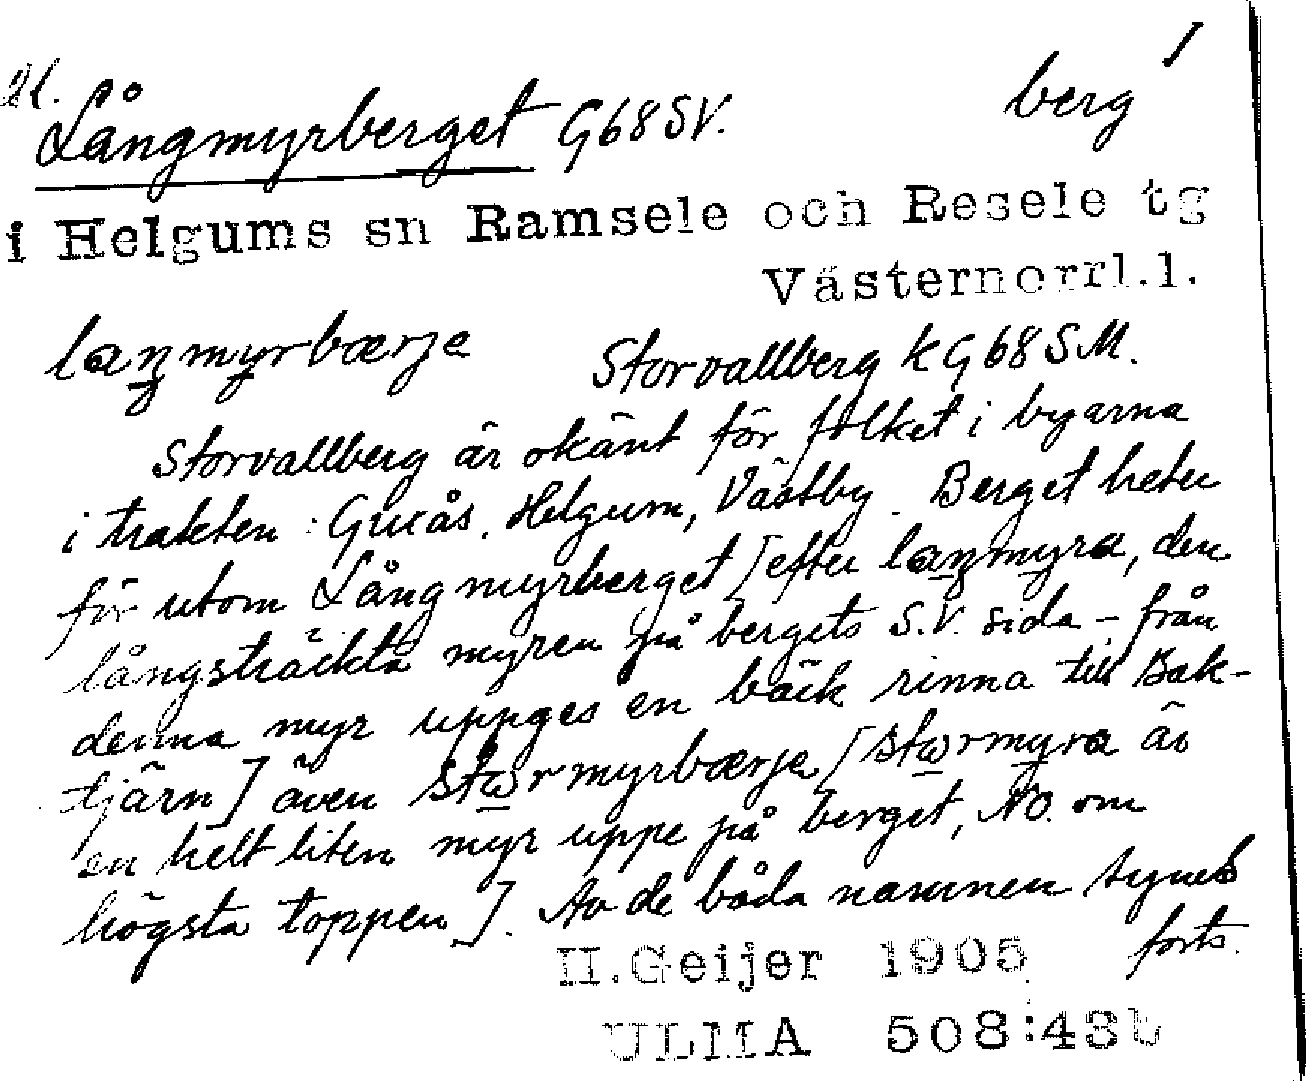 Långmyrberget G68SV. berg 1
i Helgums sn Ramsele och Resele tg
Västernorrl.l.
laŋmyrbærje Storvallberg k G68SM.
Storvallberg är okänt för folket i byarna
i trakten: Gueås. Helgum, Västby. Berget heter
för utom Långmyrberget [efter laŋmyra, den
långsträckta myren på bergets S.V. sida – från
denna myr uppges en bäck rinna till Bak-
tjärn] även stωrmyrbærje [stωrmyra är
en helt liten myr uppe på berget, NO. om
högsta toppen]. Av de båda namnen synes
forts.
H.Geijer 1905
ULMA 508:43b